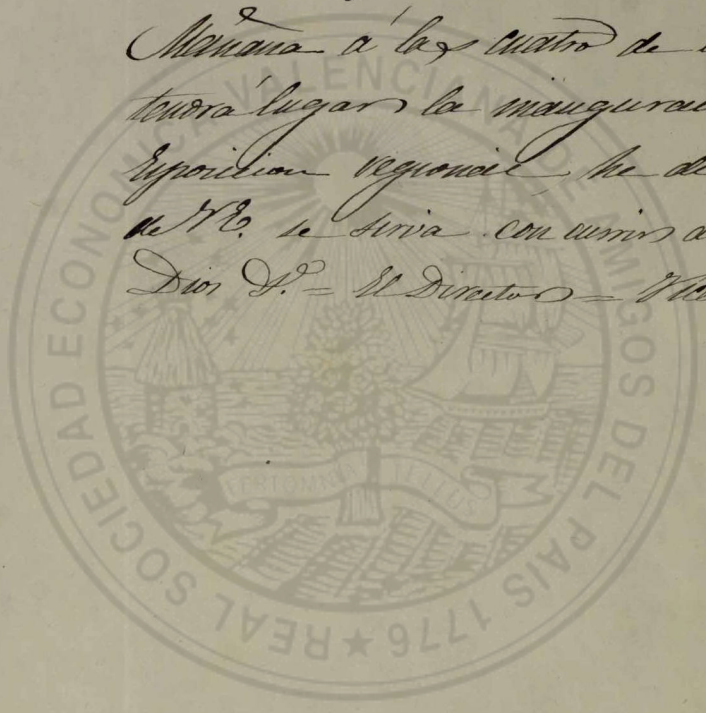 Mañana á las cuatro de
tendrá lugar la inaugurac
Exposicion regional, he de
de V.E. se sirva concurrir a
Dios &ª = El Director = Vice
REAL SOCIEDAD ECONOMICA VALENCIANA DE AMIGOS DEL PAIS 1776 ★
FERT OMNIA TELLUS